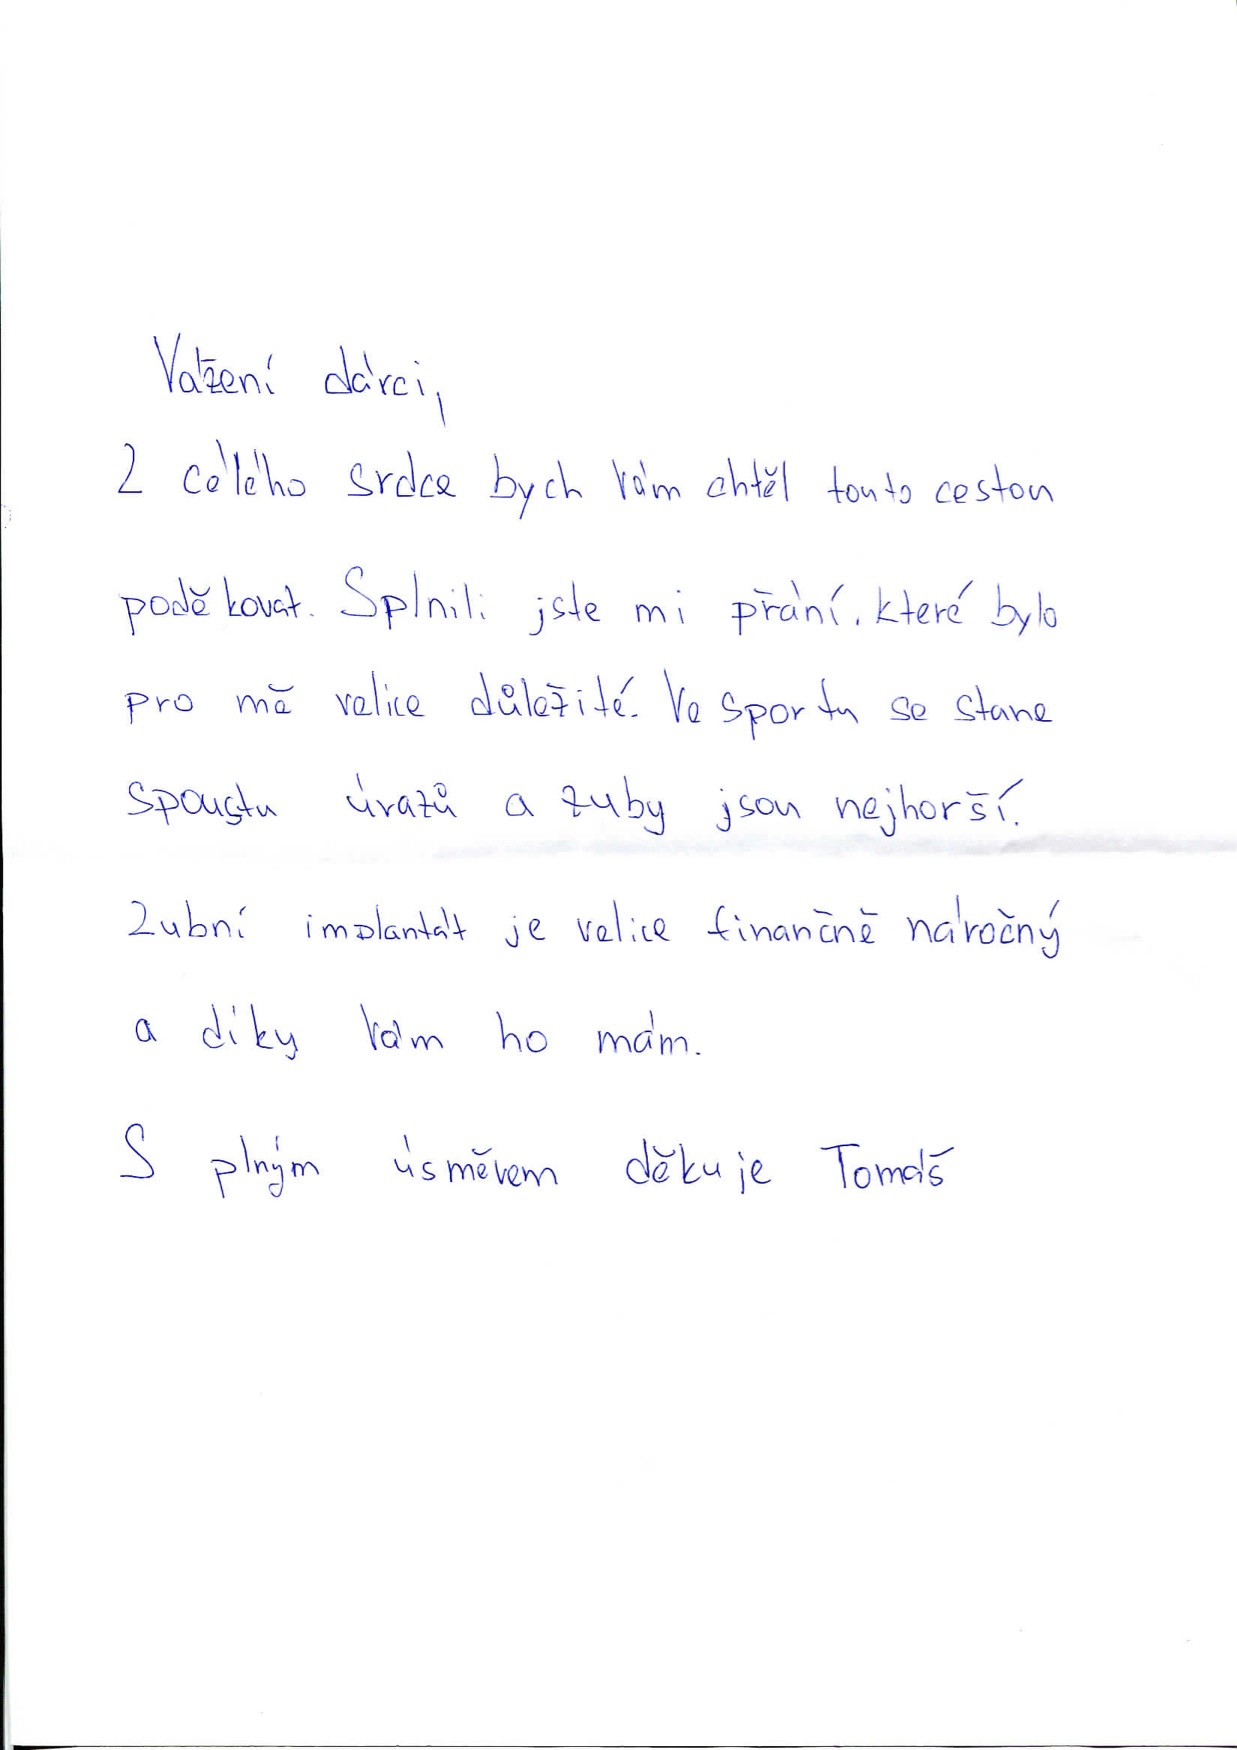 Vážení dárci,
Z celého srdce bych Vám chtěl touto cestou
poděkovat. Splnili jste mi přání, které bylo
pro mě velice důležité. Ve sportu se stane
spoustu úrazů a zuby jsou nejhorší.
Zubní implantát je velice finančně náročný
a díky Vám ho mám.
S plným úsměvem děkuje Tomáš